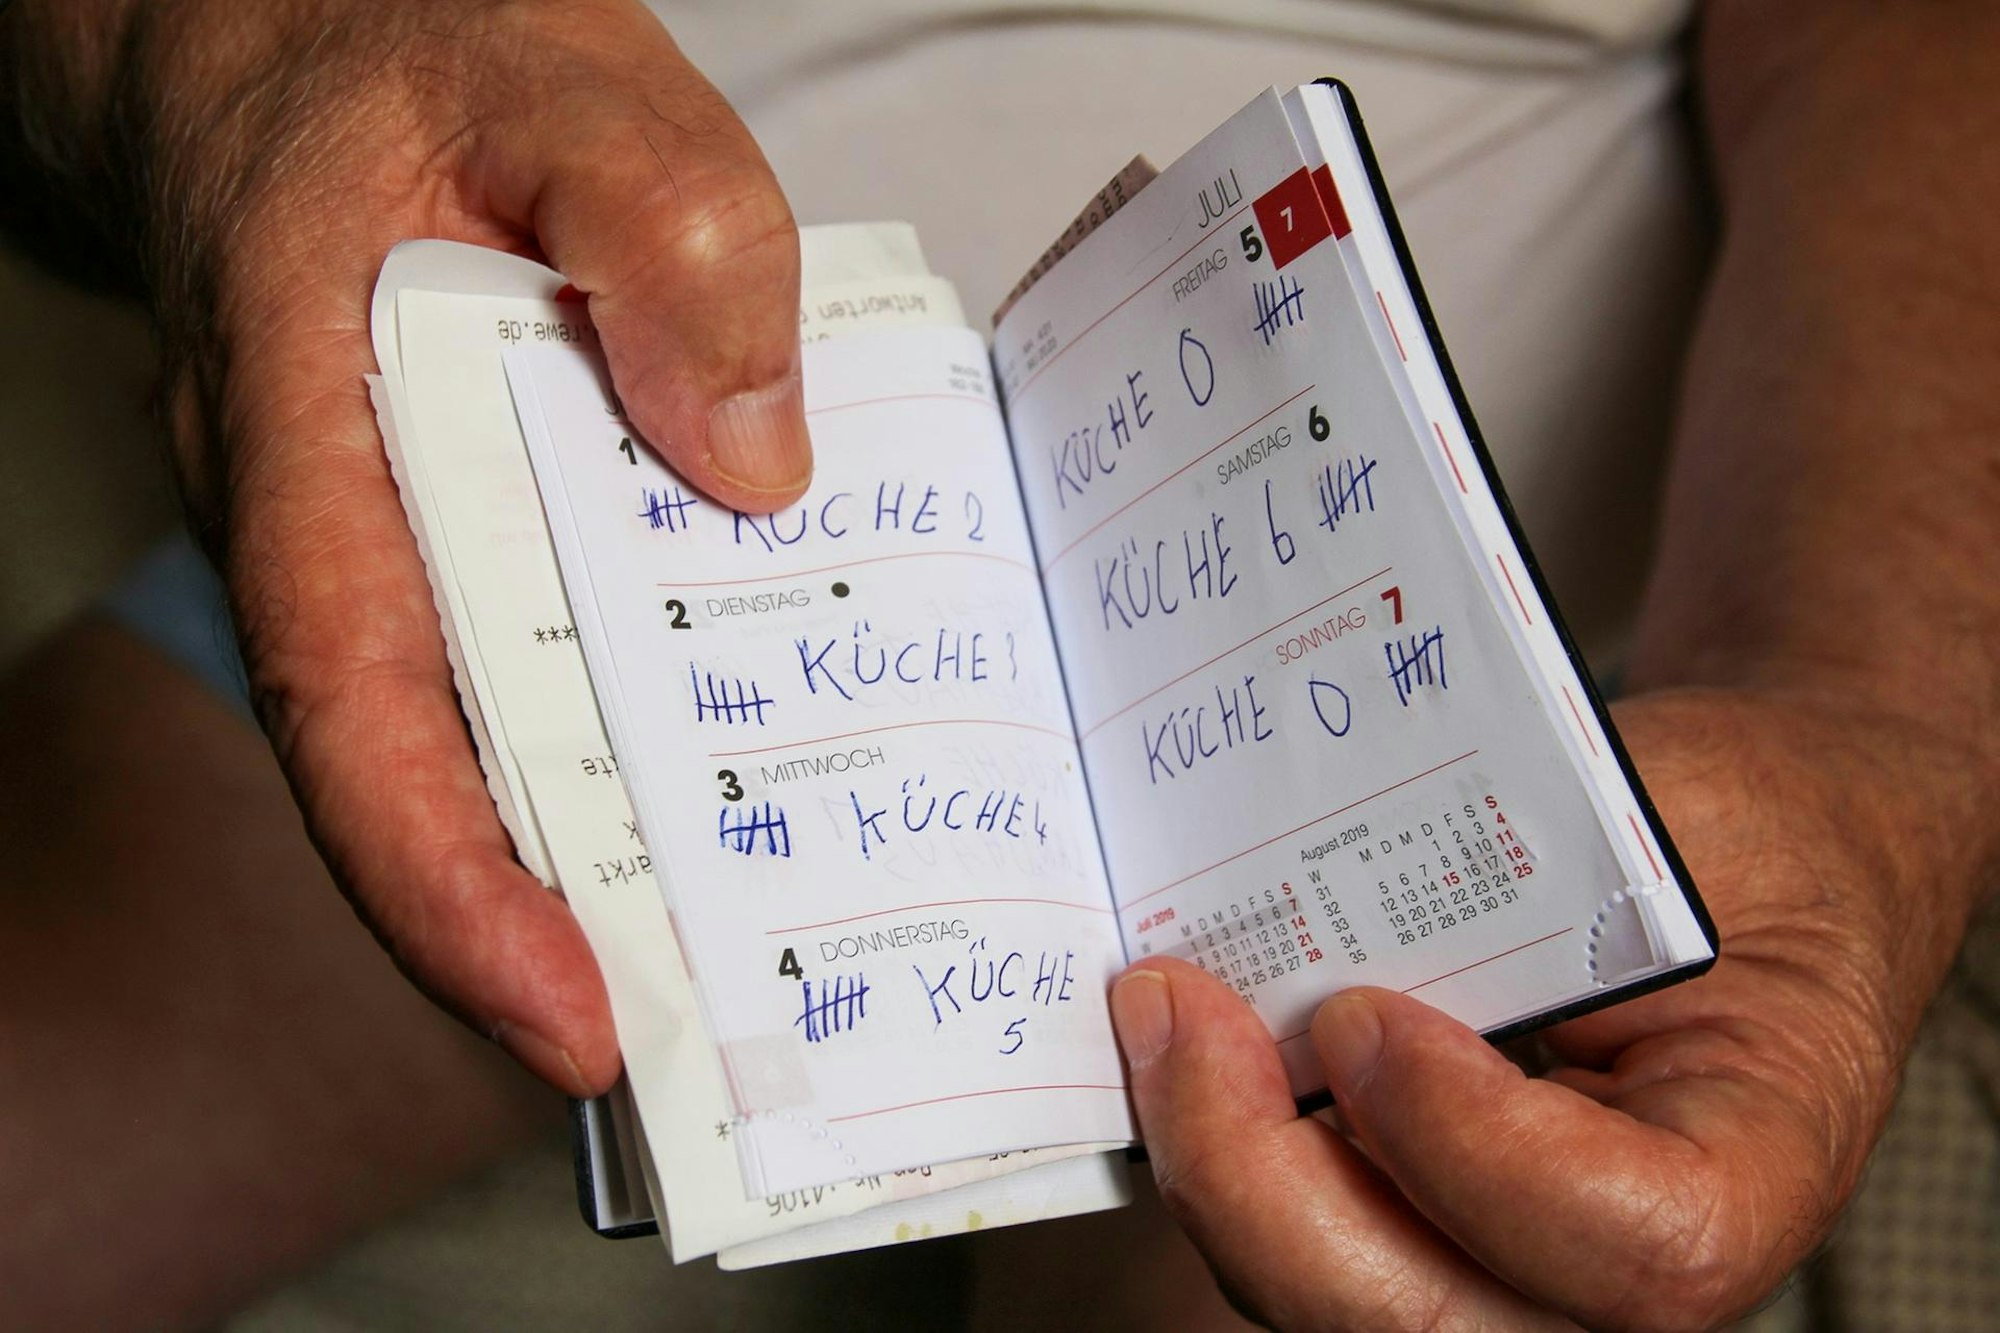 1
KÜCHE 2
2 DIENSTAG
KÜCHE 3
3 MITTWOCH
KÜCHE 4
4 DONNERSTAG
KÜCHE
5
JULI 7
FREITAG 5
KÜCHE 0
SAMSTAG 6
KÜCHE 6
SONNTAG 7
KÜCHE 0
Juli 2019
W M D M D F S S
1 2 3 4 5 6 7
8 9 10 11 12 13 14
16 17 18 19 20 21
24 25 26 27 28
31
August 2019
W M D M D F S S
31 1 2 3 4
32 5 6 7 8 9 10 11
33 12 13 14 15 16 17 18
34 19 20 21 22 23 24 25
35 26 27 28 29 30 31
rewe.de
Antworten
***
arkt
4106